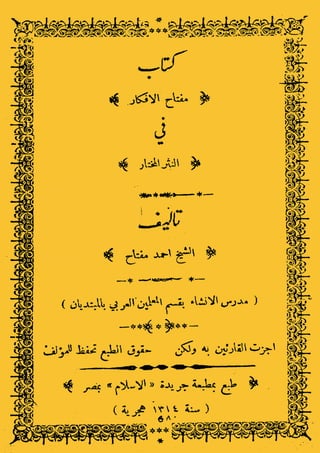 كتاب
مفتاح الافكار
في
النثر المختار
تأليف
الشيخ احمد مفتاح
( مدرس الانشاء بقسم المعلمين العربي بالمبتديان )
اجزت القارئين به ولكن حقوق الطبع تحفظ للمؤلف
طبع بمطبعة جريدة « الاسلام » بمصر
( سنة ١٣١٤ هجرية )